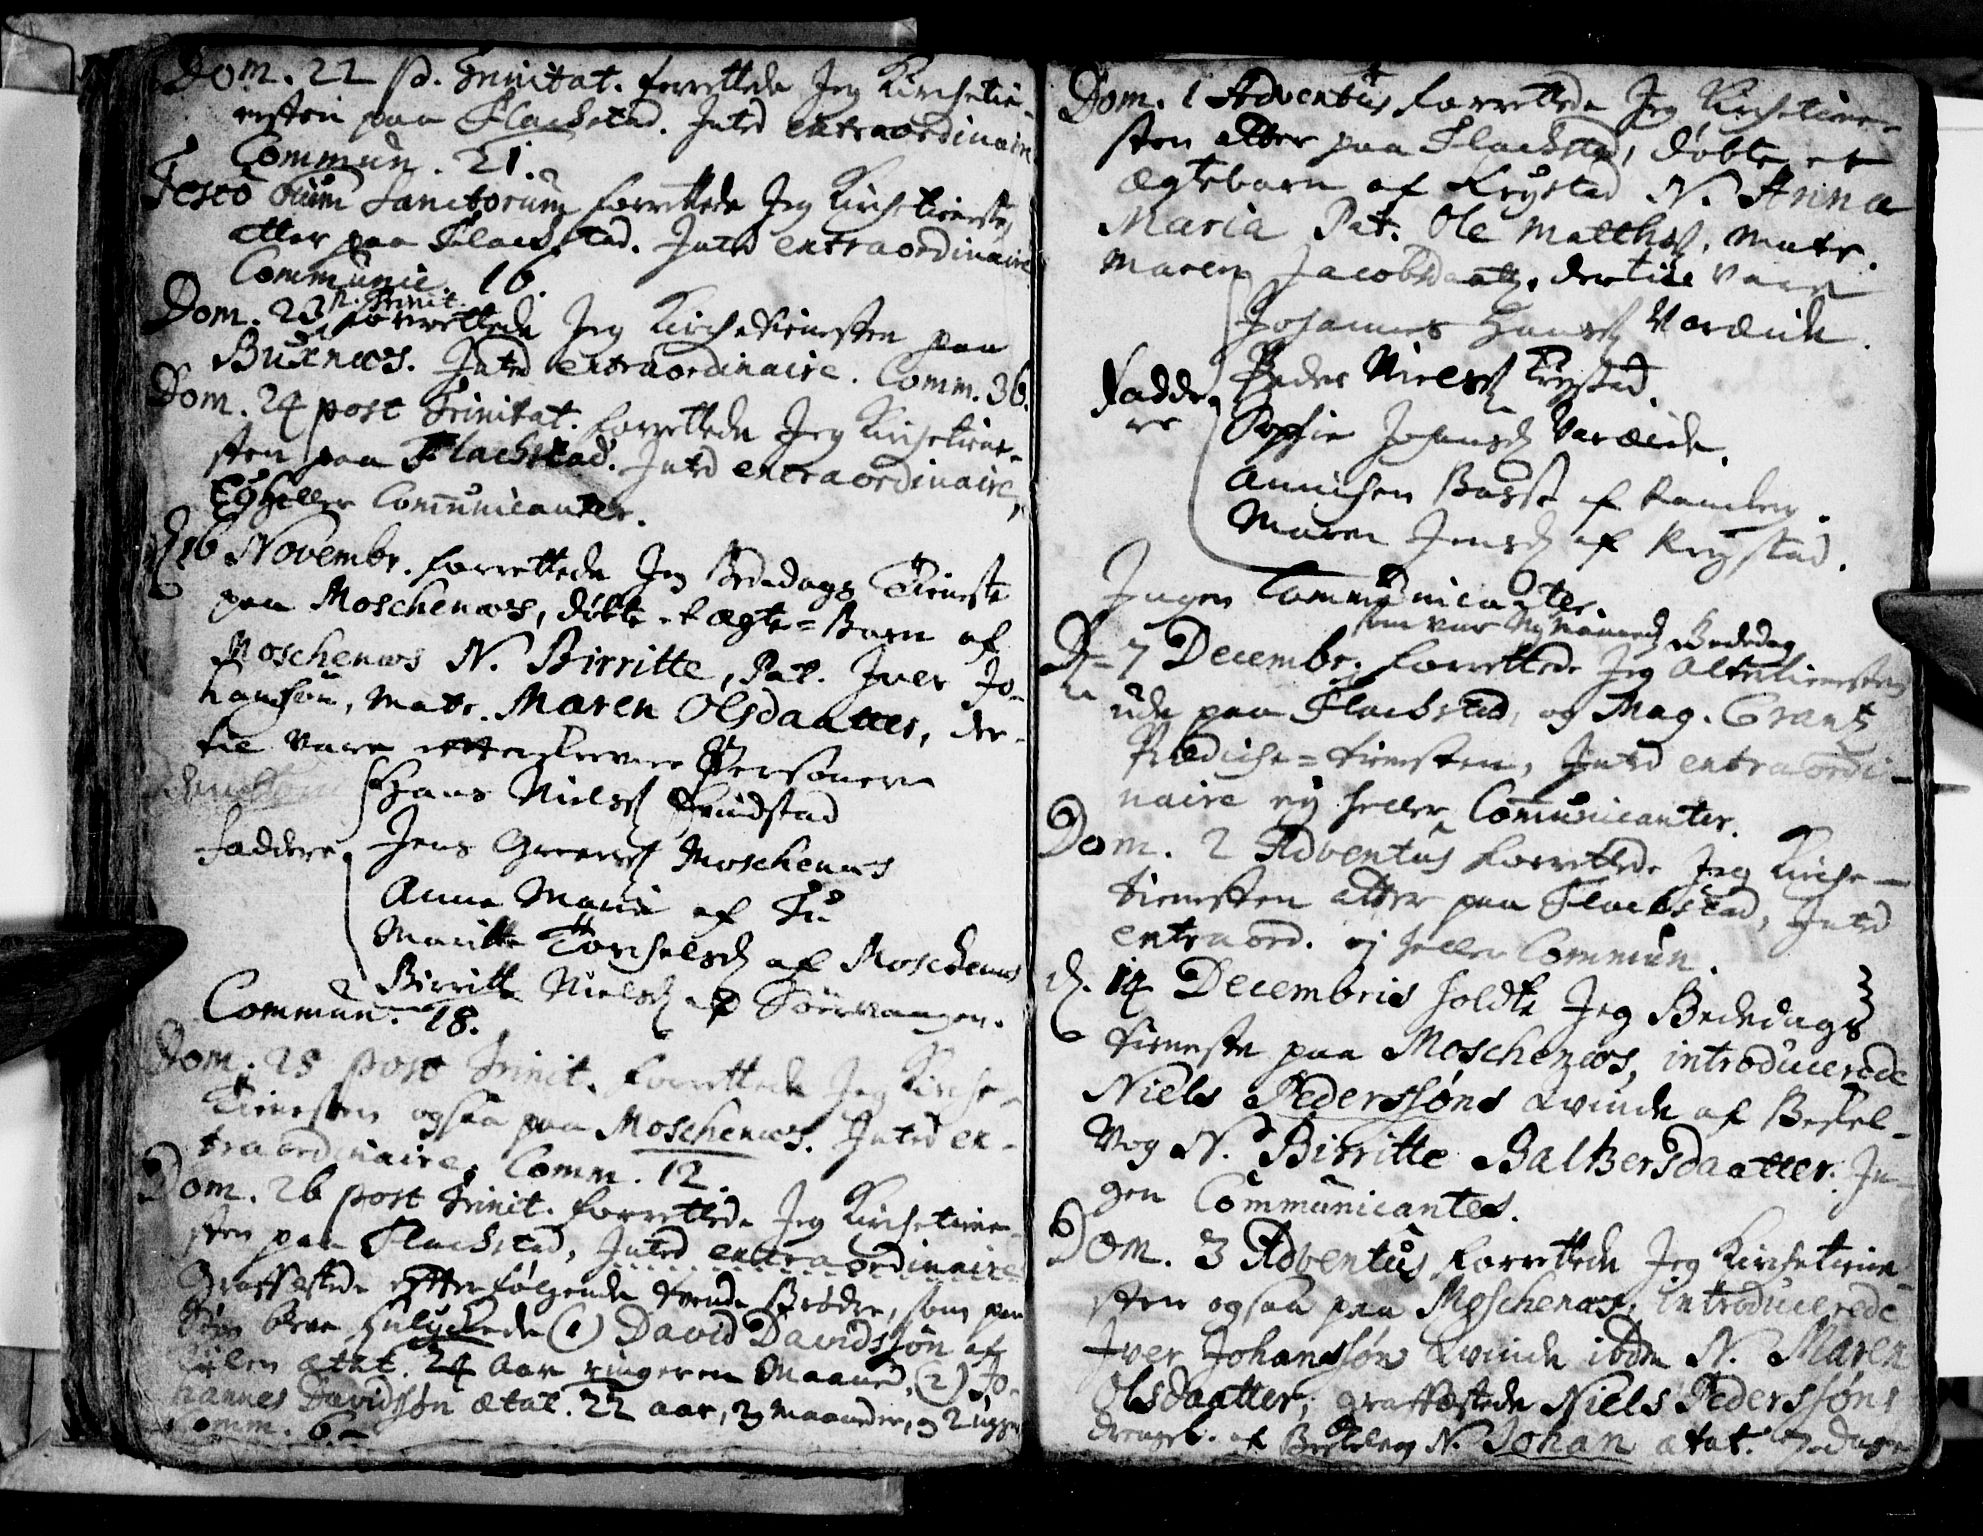 Dom. 22 p. Trinitat. forrettede Jeg Kirchetie-
nesten paa Flachstad. Inted extraordinaire
Commun. 21.
Festo Oium Sanctorum forrettede Jeg Kirchetienesten
atter paa Flachstad. Inted extraordinaire
Communic. 16.
Dom. 23 p. Trinit. forrettede Jeg Kirchetienesten paa
Buxnæs. Inted extraordinaire. Comm. 36.
Dom. 24 post Trinitat. forrettede Jeg Kirchetiene-
sten paa Flachstad. Inted extraordinaire,
Ey heller Communicanter.
D. 16 Novembr. forrettede Jeg Bededags Tieneste
paa Moschenæs, døbte et ægte-Barn af
Moschenæs N. Birritte, Pat. Iver Jo-
hansøn, Matr. Maren Olsdaatter, der-
til vare Personer
Faddere
Hans Nielss
Jens Moschenæs
Anna Marie af
Maritte af Moschenæs
Birritte Nielsd af Sørvaagen.
Commun. 18.
Dom. 25 post Trinit. forrettede Jeg Kirche-
Tienesten ogsaa paa Moschenæs. Inted ex-
traordinaire, Comm. 12.
Dom. 26 post Trinit. forrettede Jeg Kirchetiene-
sten paa Flachstad, Inted extraordinaire
Graffæstede efterfølgende tvende Brødre, som paa
Søen bleve (1) David Davidssøn af
ætat. 24 aar ringeren Maaned, (2) Jo-
hannes Davidssøn ætat. 22 aar, 2 maaneder, og 2 uger
Comm. 6.
Dom. 1 Adventus forrettede Jeg Kirchetiene-
sten atter paa Flachstad, døbte et
ægtebarn af Krystad N. Anna
Maria Pat. Ole Matthss, Matr.
Maren Jacobsdaatt, dertil vare
Faddere
Johannes Hanss Vareide.
Peder Nielss Krystad.
Sophie Johansd Vareide.
Annichen Basse af Ramberg.
Maren Jensd af Krystad.
Ingen Communicanter.
D. 7 Decembr. som var Bededag forrettede Jeg Altertienesten
ude paa Flachstad, og Mag. Crantz
Prædiche-tienesten, Inted extraordi-
naire ey heller Communicanter.
Dom. 2 Adventus forrettede Jeg Kirche-
tienesten atter paa Flachstad, Inted
extraord. ej heller Commun.
D. 14 Decembris holdte Jeg Bededags
tieneste paa Moschenæs, introducerede
Niels Pederssøns Qvinde af Beskel-
Vog N. Birritte Baltzersdaatter. In-
gen Communicantes.
Dom. 3 Adventus forrettede Jeg Kirchetiene-
sten ogsaa paa Moschenæs, introducerede
Iver Johanssøns Qvinde ibdm N. Maren
Olsdaatter, graffæstede Niels Pederssøns
drengeb. af N. Johan ætat. dage